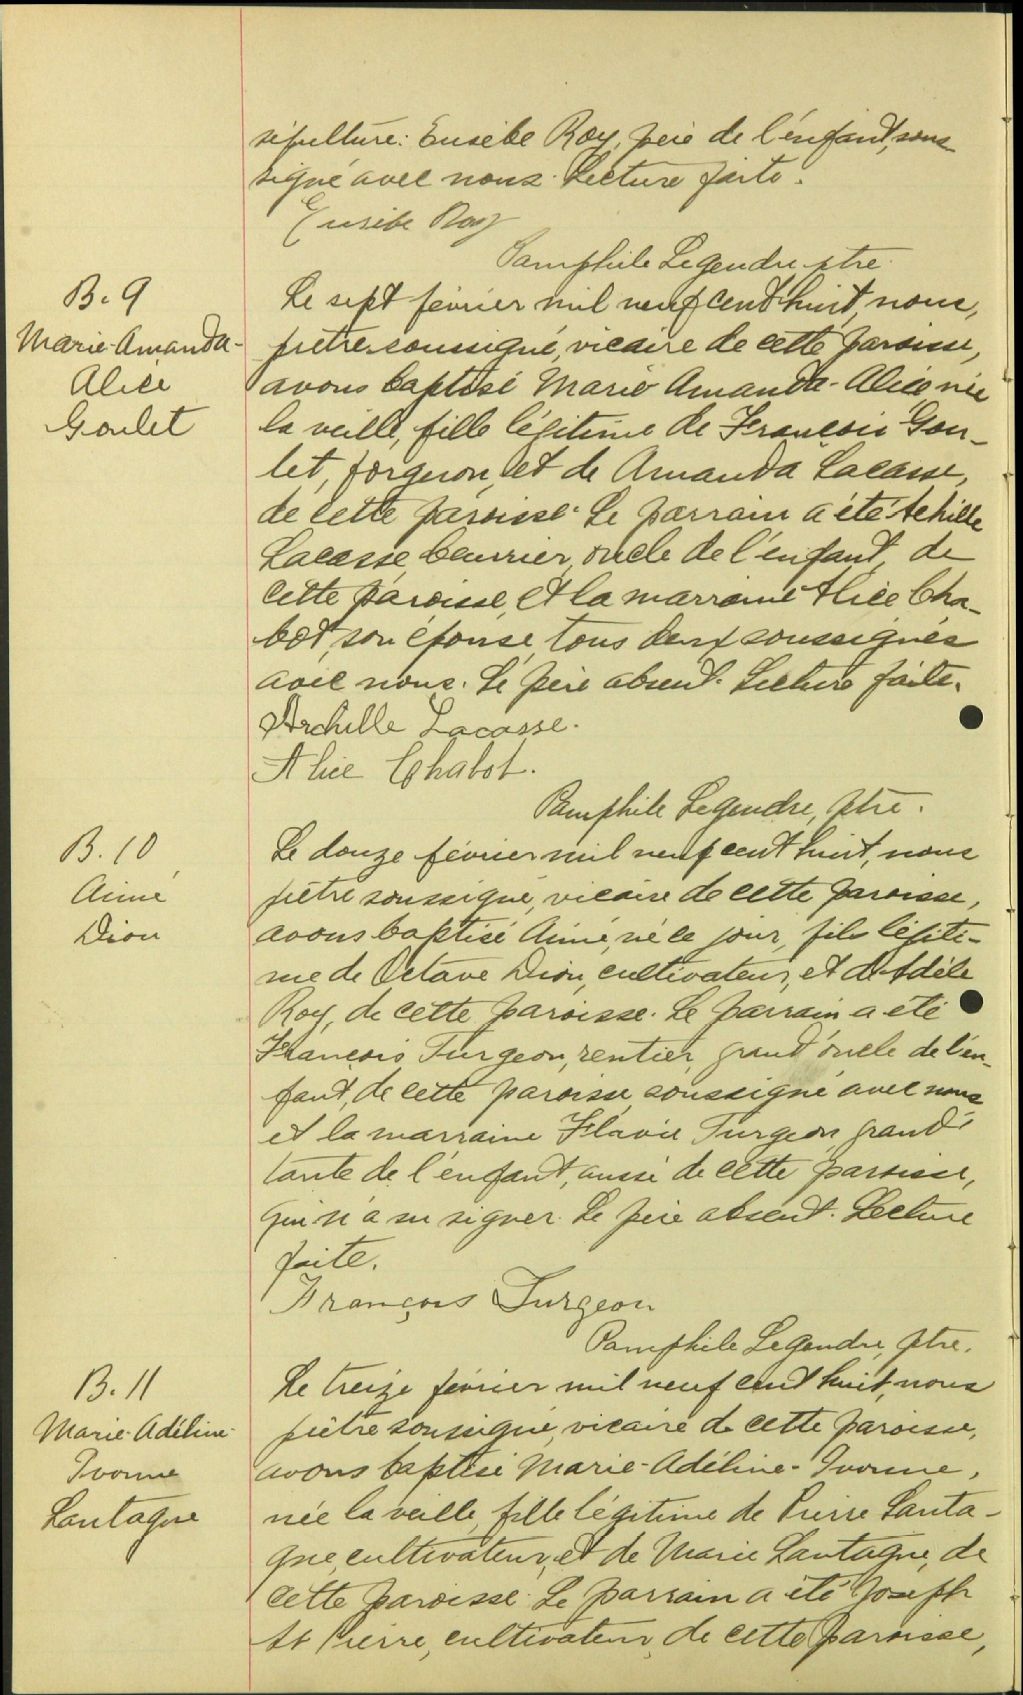 sépulture: Eusèbe Roy, père de l'enfant, sous
signé avec nous. Lecture faite.
Eusèbe Roy
Pamphile Legendre ptre.
B. 9
Marie-Amanda-
Alice
Goulet
Le sept février mil neuf cent huit, nous,
prêtre soussigné, vicaire de cette paroisse,
avons baptisé Marie Amanda-Alice, née
la veille, fille légitime de François Gou-
let, forgeron, et de Amanda Lacasse,
de cette paroisse. Le parrain a été Achille
Lacasse, beurrier, oncle de l'enfant, de
cette paroisse et la marraine Alice Cha-
bot, son épouse, tous deux soussignés
avec nous. Le père absent. Lecture faite.
Archille Lacasse.
Alice Chabot.
Pamphile Legendre, ptre.
B. 10
Aimé
Dion
Le douze février mil neuf cent huit, nous
prêtre soussigné, vicaire de cette paroisse,
avons baptisé Aimé, né ce jour, fils légiti-
me de Octave Dion, cultivateur, et de Adèle
Roy, de cette paroisse. Le parrain a été
François Turgeon, rentier, grand'oncle de l'en-
fant, de cette paroisse soussigné avec nous
et la marraine Flavie Turgeon, grand'
tante de l'enfant, aussi de cette paroisse,
qui n'a su signer. Le père absent. Lecture
faite.
François Turgeon
Pamphile Legendre, ptre.
B. 11
Marie-Adéline-
Yvonne
Lantagne
Le treize février mil neuf cent huit, nous
prêtre soussigné, vicaire de cette paroisse,
avons baptisé Marie-Adéline-Yvonne,
née la veille, fille légitime de Pierre Lanta-
gne, cultivateur, et de Marie Lantagne, de
cette paroisse. Le parrain a été Joseph
St Pierre, cultivateur, de cette paroisse,